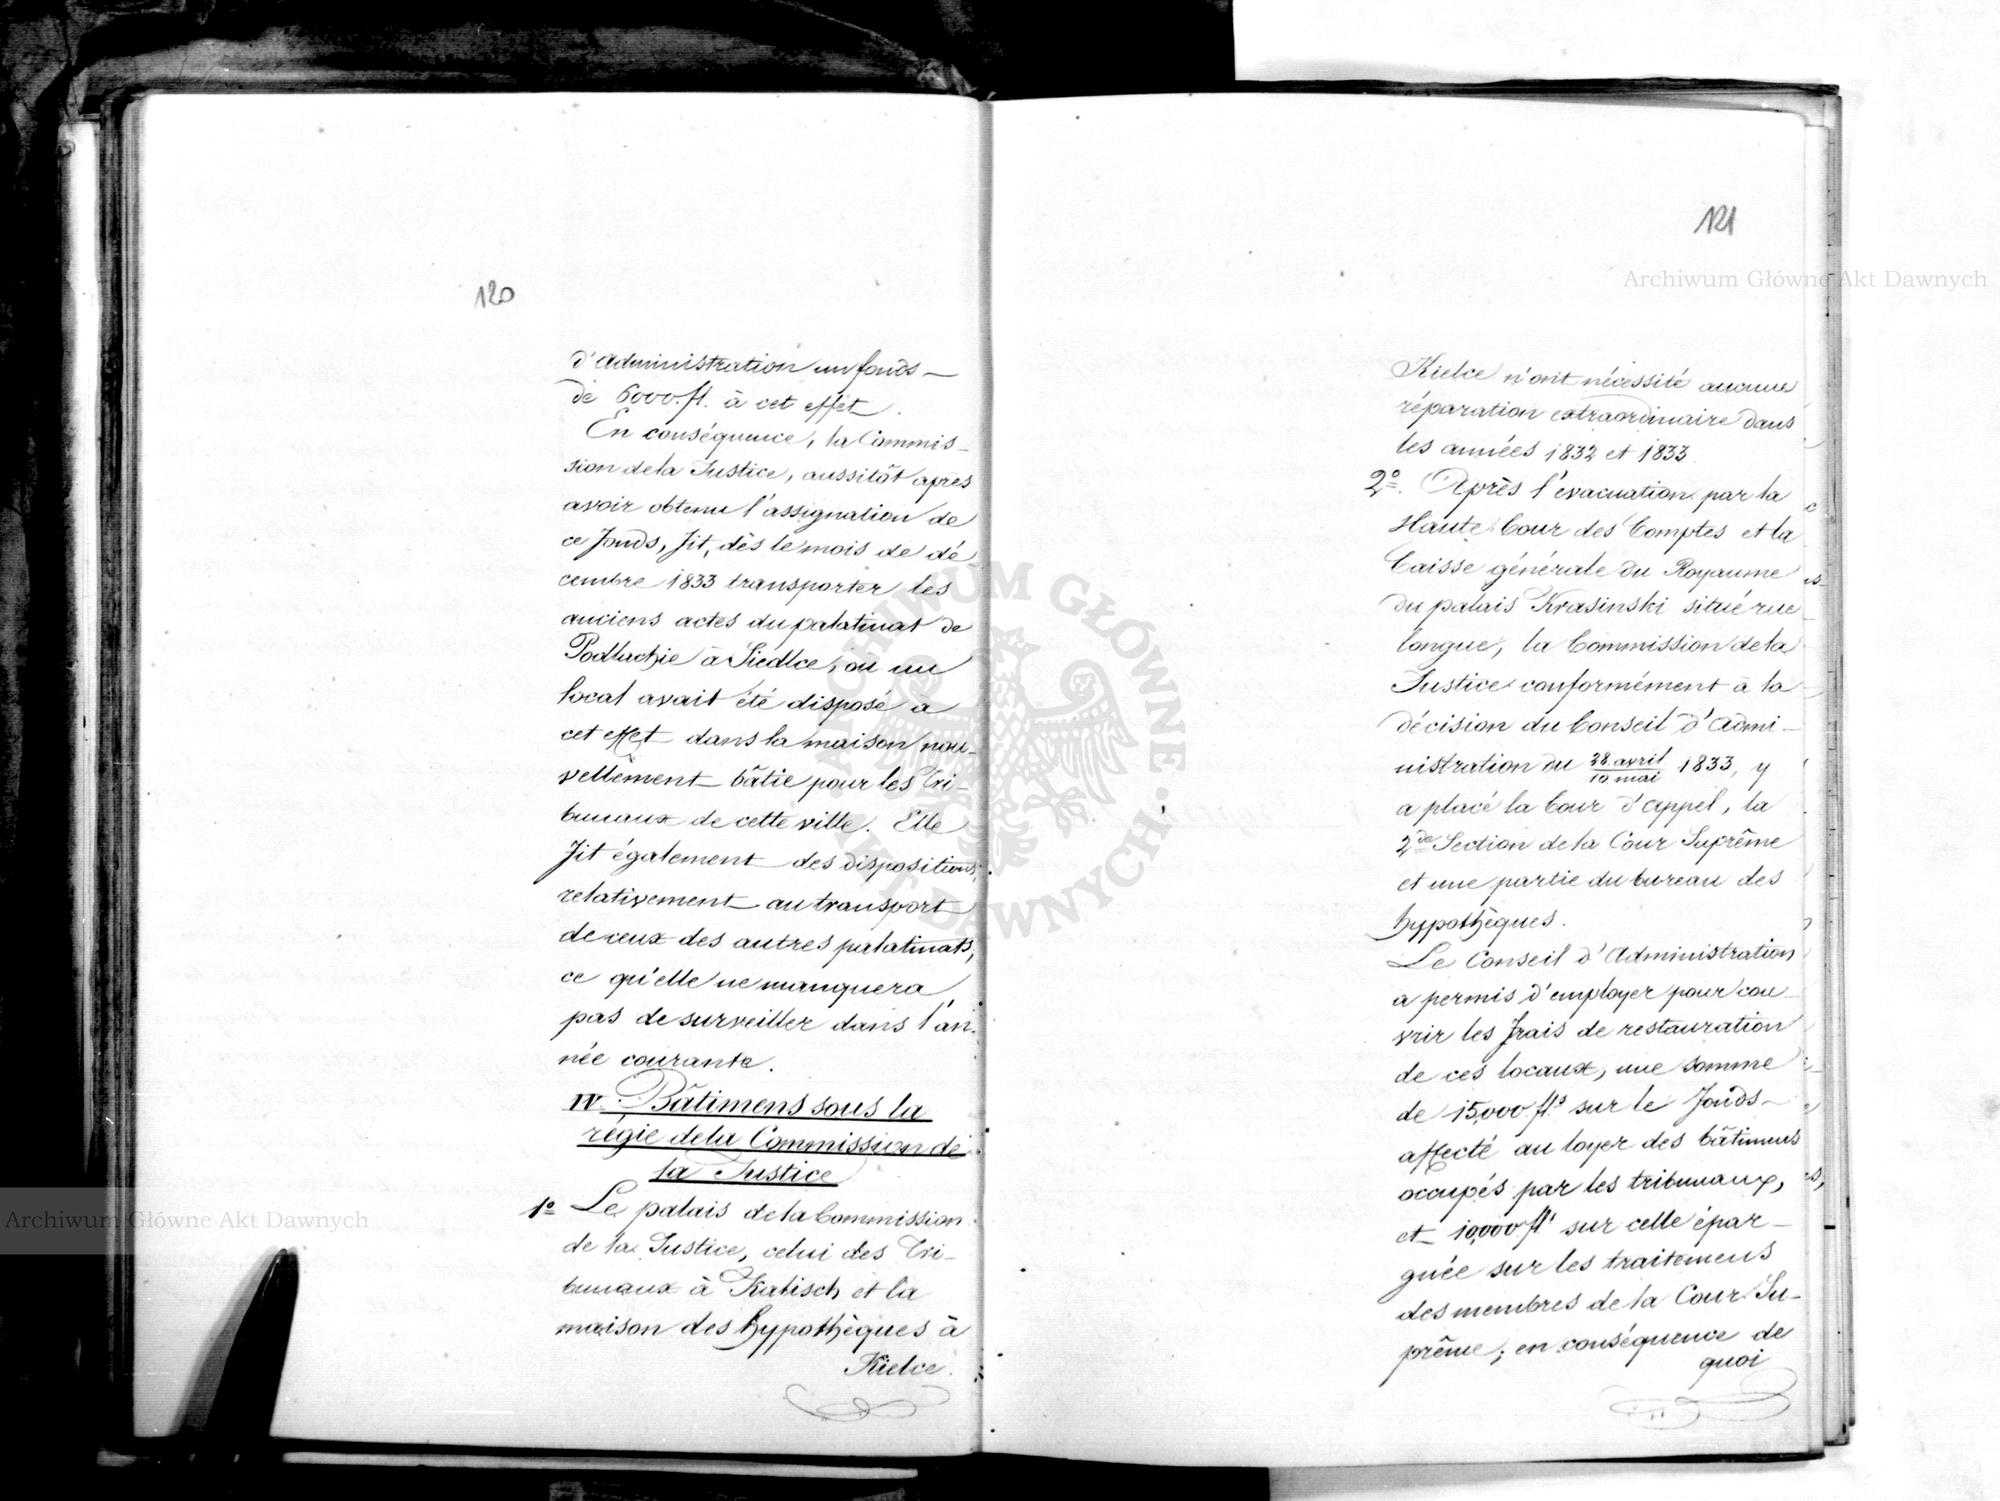 120
d'Administration un fonds —
de 6000. fl. à cet effet.
En conséquence, la Commis-
sion de la Justice, aussitôt après
avoir obtenu l'assignation de
ce fonds, fit, dès le mois de dé-
cembre 1833 transporter les
anciens actes du palatinat de
Podlachie à Siedlce, où un
local avait été disposé à
cet effet dans la maison nou-
vellement bâtie pour les Tri-
bunaux de cette ville. Elle
fit également des dispositions
relativement au transport
de ceux des autres palatinats,
ce qu'elle ne manquera
pas de surveiller dans l'an-
née courante.
IV. Bâtimens sous la
régie de la Commission de
la Justice
1º Le palais de la Commission
de la Justice, celui des Tri-
bunaux à Kalisch et la
maison des hypothèques à
Kielce.
121
Kielce n'ont nécessité aucune
réparation extraordinaire dans
les années 1832 et 1833
2º. Après l'évacuation par la
Haute Cour des Comptes et la
Caisse générale du Royaume
du palais Krasinski situé rue
longue, la Commission de la
Justice conformément à la
décision du Conseil d'Admi-
nistration du 28 avril/10 mai 1833, y
a placé la Cour d'Appel, la
2de Section de la Cour Suprême
et une partie du bureau des
hypothèques.
Le Conseil d'Administration
a permis d'employer pour cou-
vrir les frais de restauration
de ces locaux, une somme
de 15,000 fls sur le fonds —
affecté au loyer des bâtimens
occupés par les tribunaux,
et 10,000 fls sur celle épar-
gnée sur les traitemens
des membres de la Cour Su-
prême; en conséquence de
quoi
Archiwum Główne Akt Dawnych
Archiwum Główne Akt Dawnych
ARCHIWUM GŁÓWNE AKT DAWNYCH